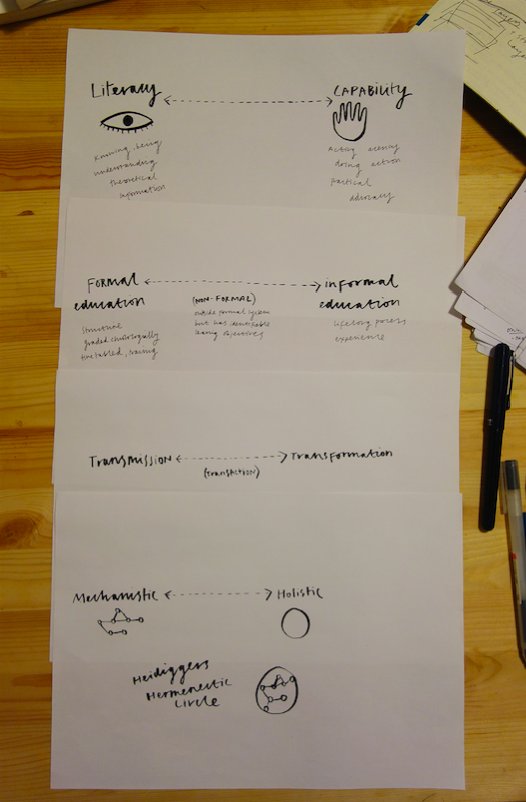 Literacy
CAPABILITY
Knowing, being
understanding
theoretical
information
Acting agency
doing action
partical
advocacy
FORMAL
education
(NON-FORMAL)
outside formal system
but has
learning objectives
informal
education
structure
graded
timetabled, training
lifelong
experience
Transmission
(TRANSACTION)
Transformation
Mechanistic
Holistic
Heidiggers
Hermenectic
Circle